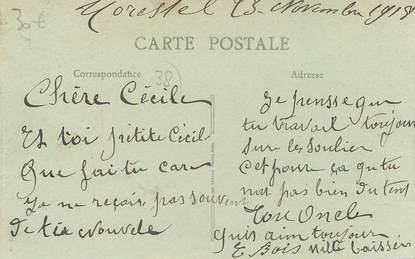 30€
Morestel 13 Novembre 1918
CARTE POSTALE
Correspondance
38
Adresse
Chère Cécile
Et toi petite Cécil
que fai tu care
Je ne reçois pas souvent
de tes Nouvele
Je pensse que
tu travail toujour
sur les soulier
Cet pour ça que tu
nat pas bien du tent
Ton Oncle
qui s aim toujour
E Bois mille baisser